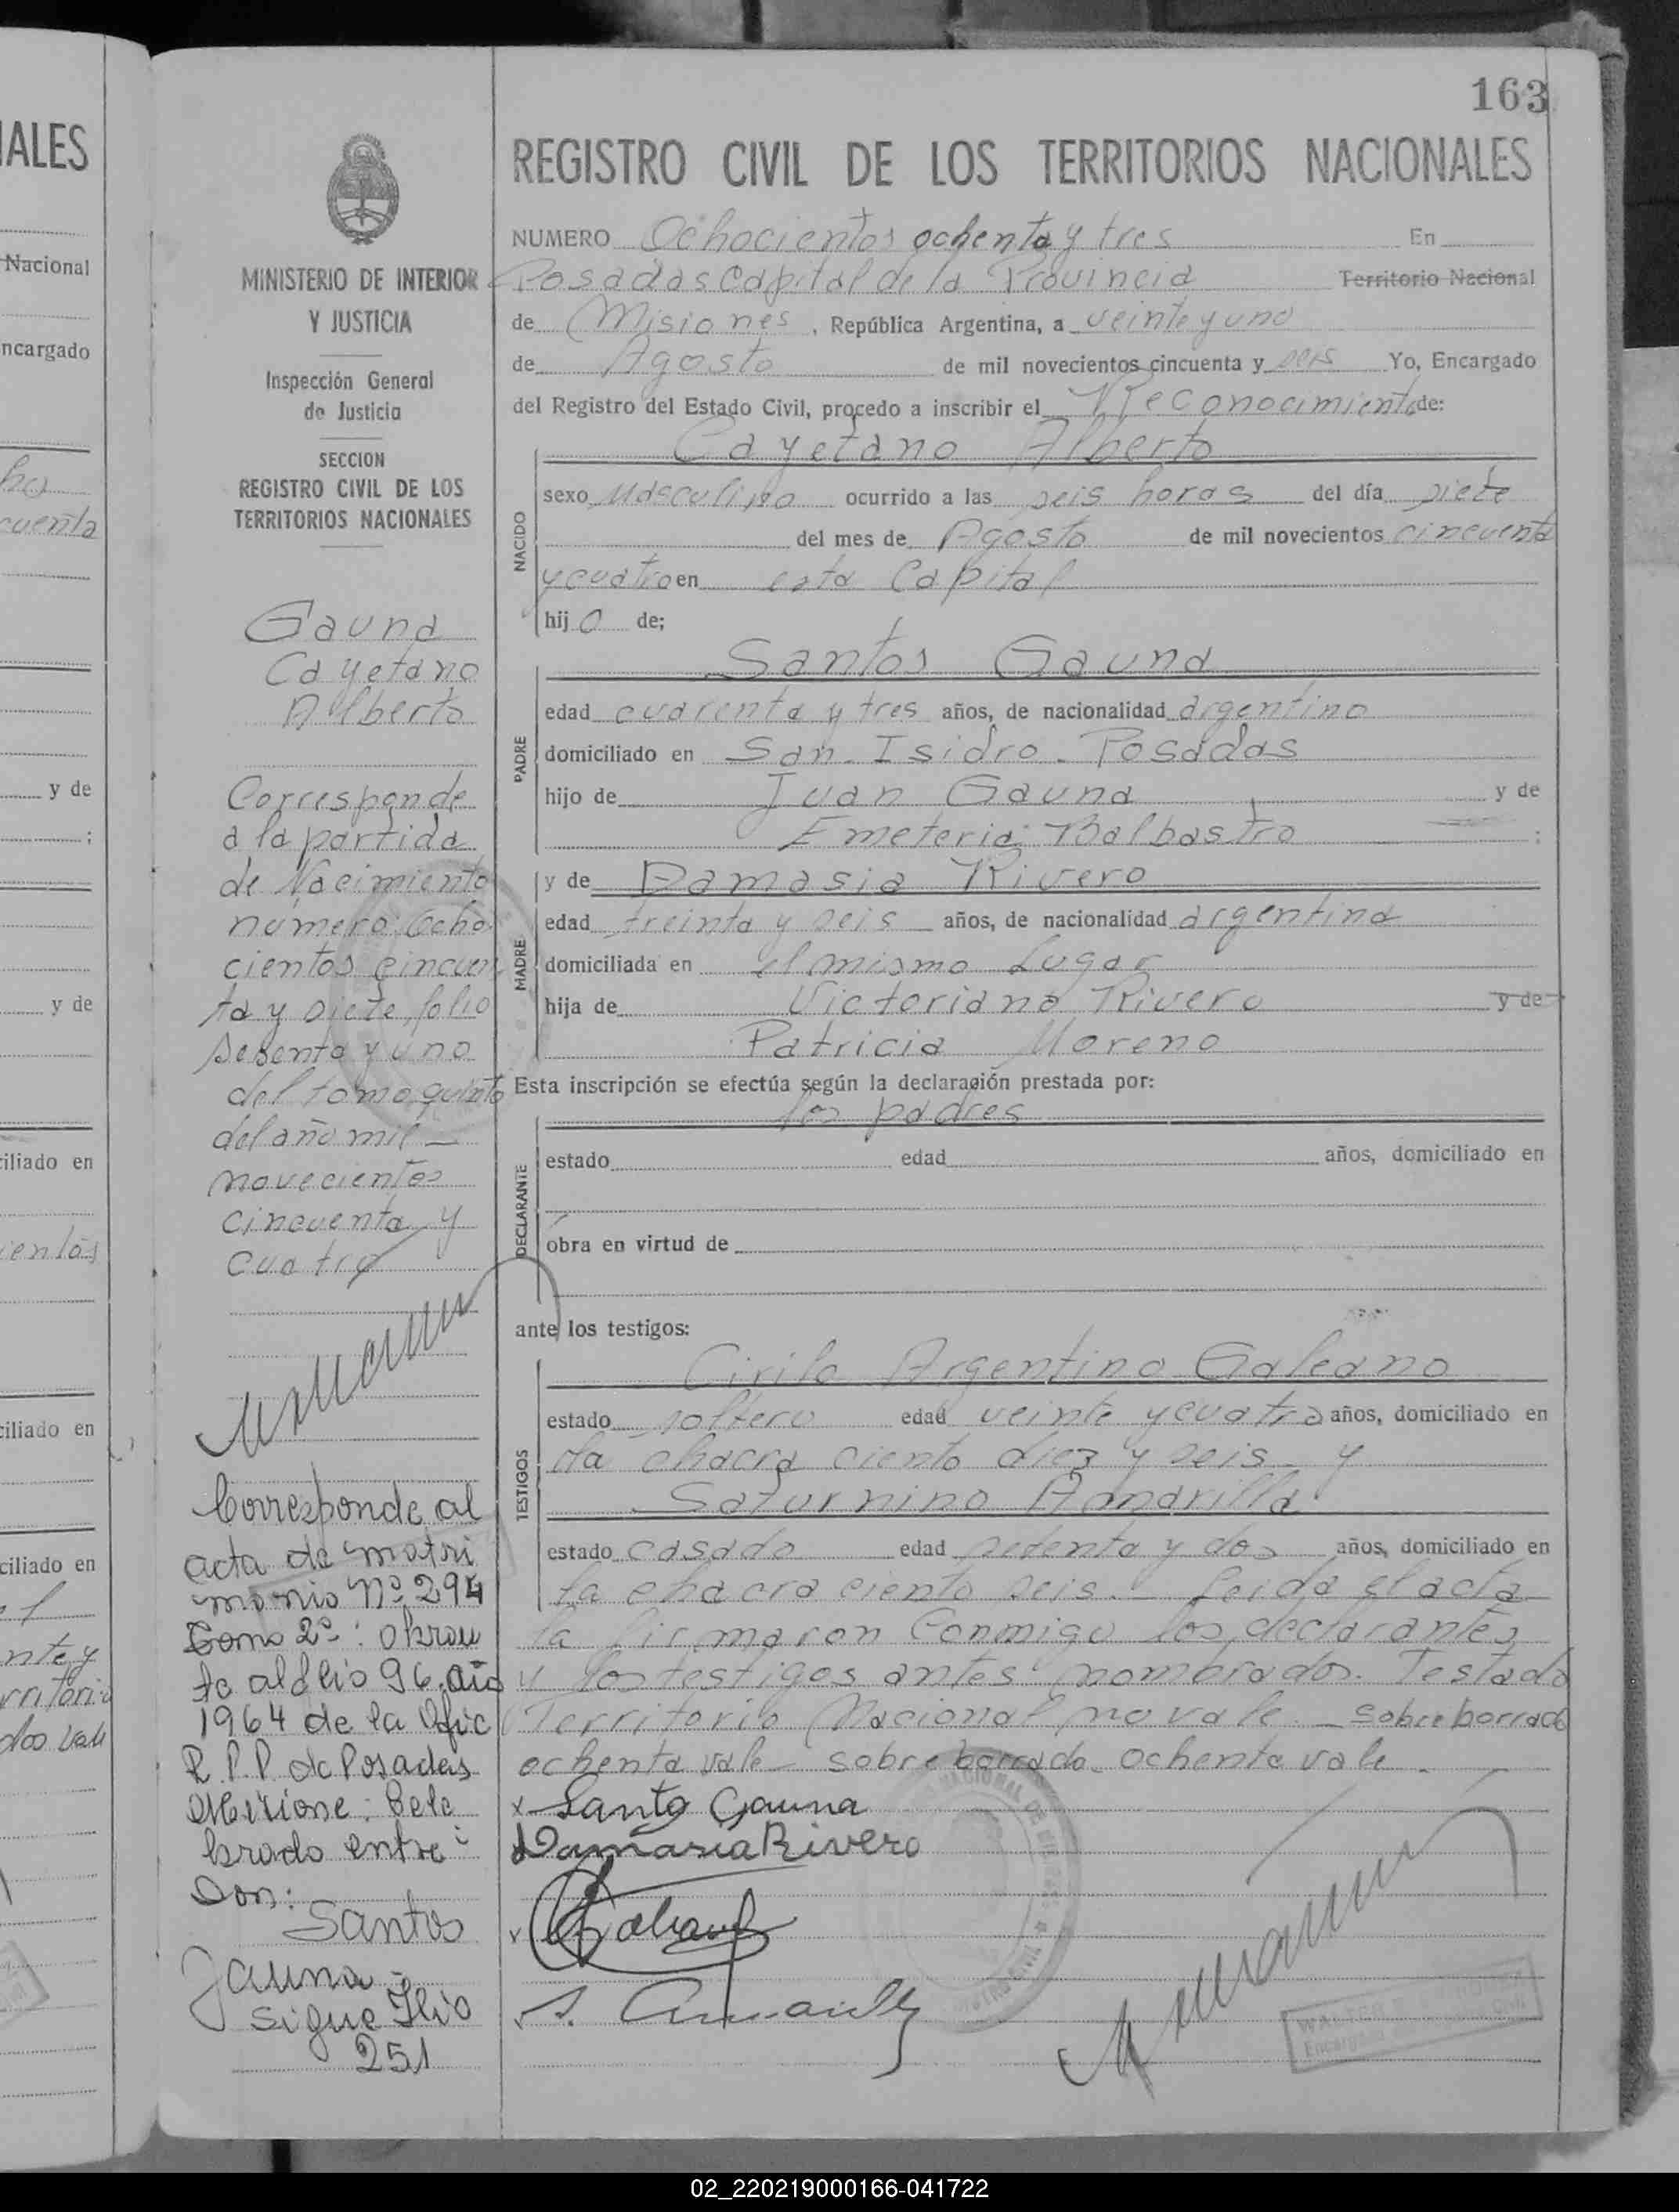 163
REGISTRO CIVIL DE LOS TERRITORIOS NACIONALES
MINISTERIO DE INTERIOR
Y JUSTICIA
Inspección General
de Justicia
SECCION
REGISTRO CIVIL DE LOS
TERRITORIOS NACIONALES
Gauna
Cayetano
Alberto
Corresponde
a la partida
de Nacimiento
número: ocho
cientos cincuen
ta y siete, folio
sesenta y uno
del tomo quinto
del año mil
novecientos
cincuenta y
cuatro
Corresponde al
acta de matri
monio Nº 294
Tomo 2º:
al folio 96. año
1964 de la Ofic
R.P.P. de Posadas
Misione: Cele
brado entre:
Don:
Santos
Gauna -
Sigue Flio
251
NUMERO Ochocientos ochenta y tres En
Posadas Capital de la Provincia Territorio Nacional
de Misiones, República Argentina, a veinte y uno
de Agosto de mil novecientos cincuenta y seis Yo, Encargado
del Registro del Estado Civil, procedo a inscribir el Reconocimiento de:
Cayetano Alberto
NACIDO
sexo Masculino ocurrido a las seis horas del día siete
del mes de Agosto de mil novecientos cincuenta
y cuatro en esta Capital
hijo de;
Santos Gauna
PADRE
edad cuarenta y tres años, de nacionalidad argentino
domiciliado en San Isidro - Posadas
hijo de Juan Gauna y de
Emeteria Balbastro ;
y de Damasia Rivero
MADRE
edad treinta y seis años, de nacionalidad argentina
domiciliada en el mismo Lugar
hija de Victoriano Rivero y de
Patricia Moreno
Esta inscripción se efectúa según la declaración prestada por:
los padres
DECLARANTE
estado edad años, domiciliado en
obra en virtud de
ante los testigos:
Cirilo Argentino Galeano
TESTIGOS
estado soltero edad veinte y cuatro años, domiciliado en
la chacra ciento diez y seis y
Saturnino Amarilla
estado casado edad setenta y dos años, domiciliado en
la chacra ciento seis. - Leida el acta
la firmaron Conmigo los declarantes
y los testigos antes nombrados. Testado
Territorio Nacional no vale - sobreborrado
ochenta vale - sobreborrado ochenta vale.
x Santo Gauna
x Damasia Rivero
IALES
Nacional
ncargado
cuenta
y de
;
y de
iliado en
ientos
ciliado en
ciliado en
nte y
rritorio
dos vale
02_220219000166-041722